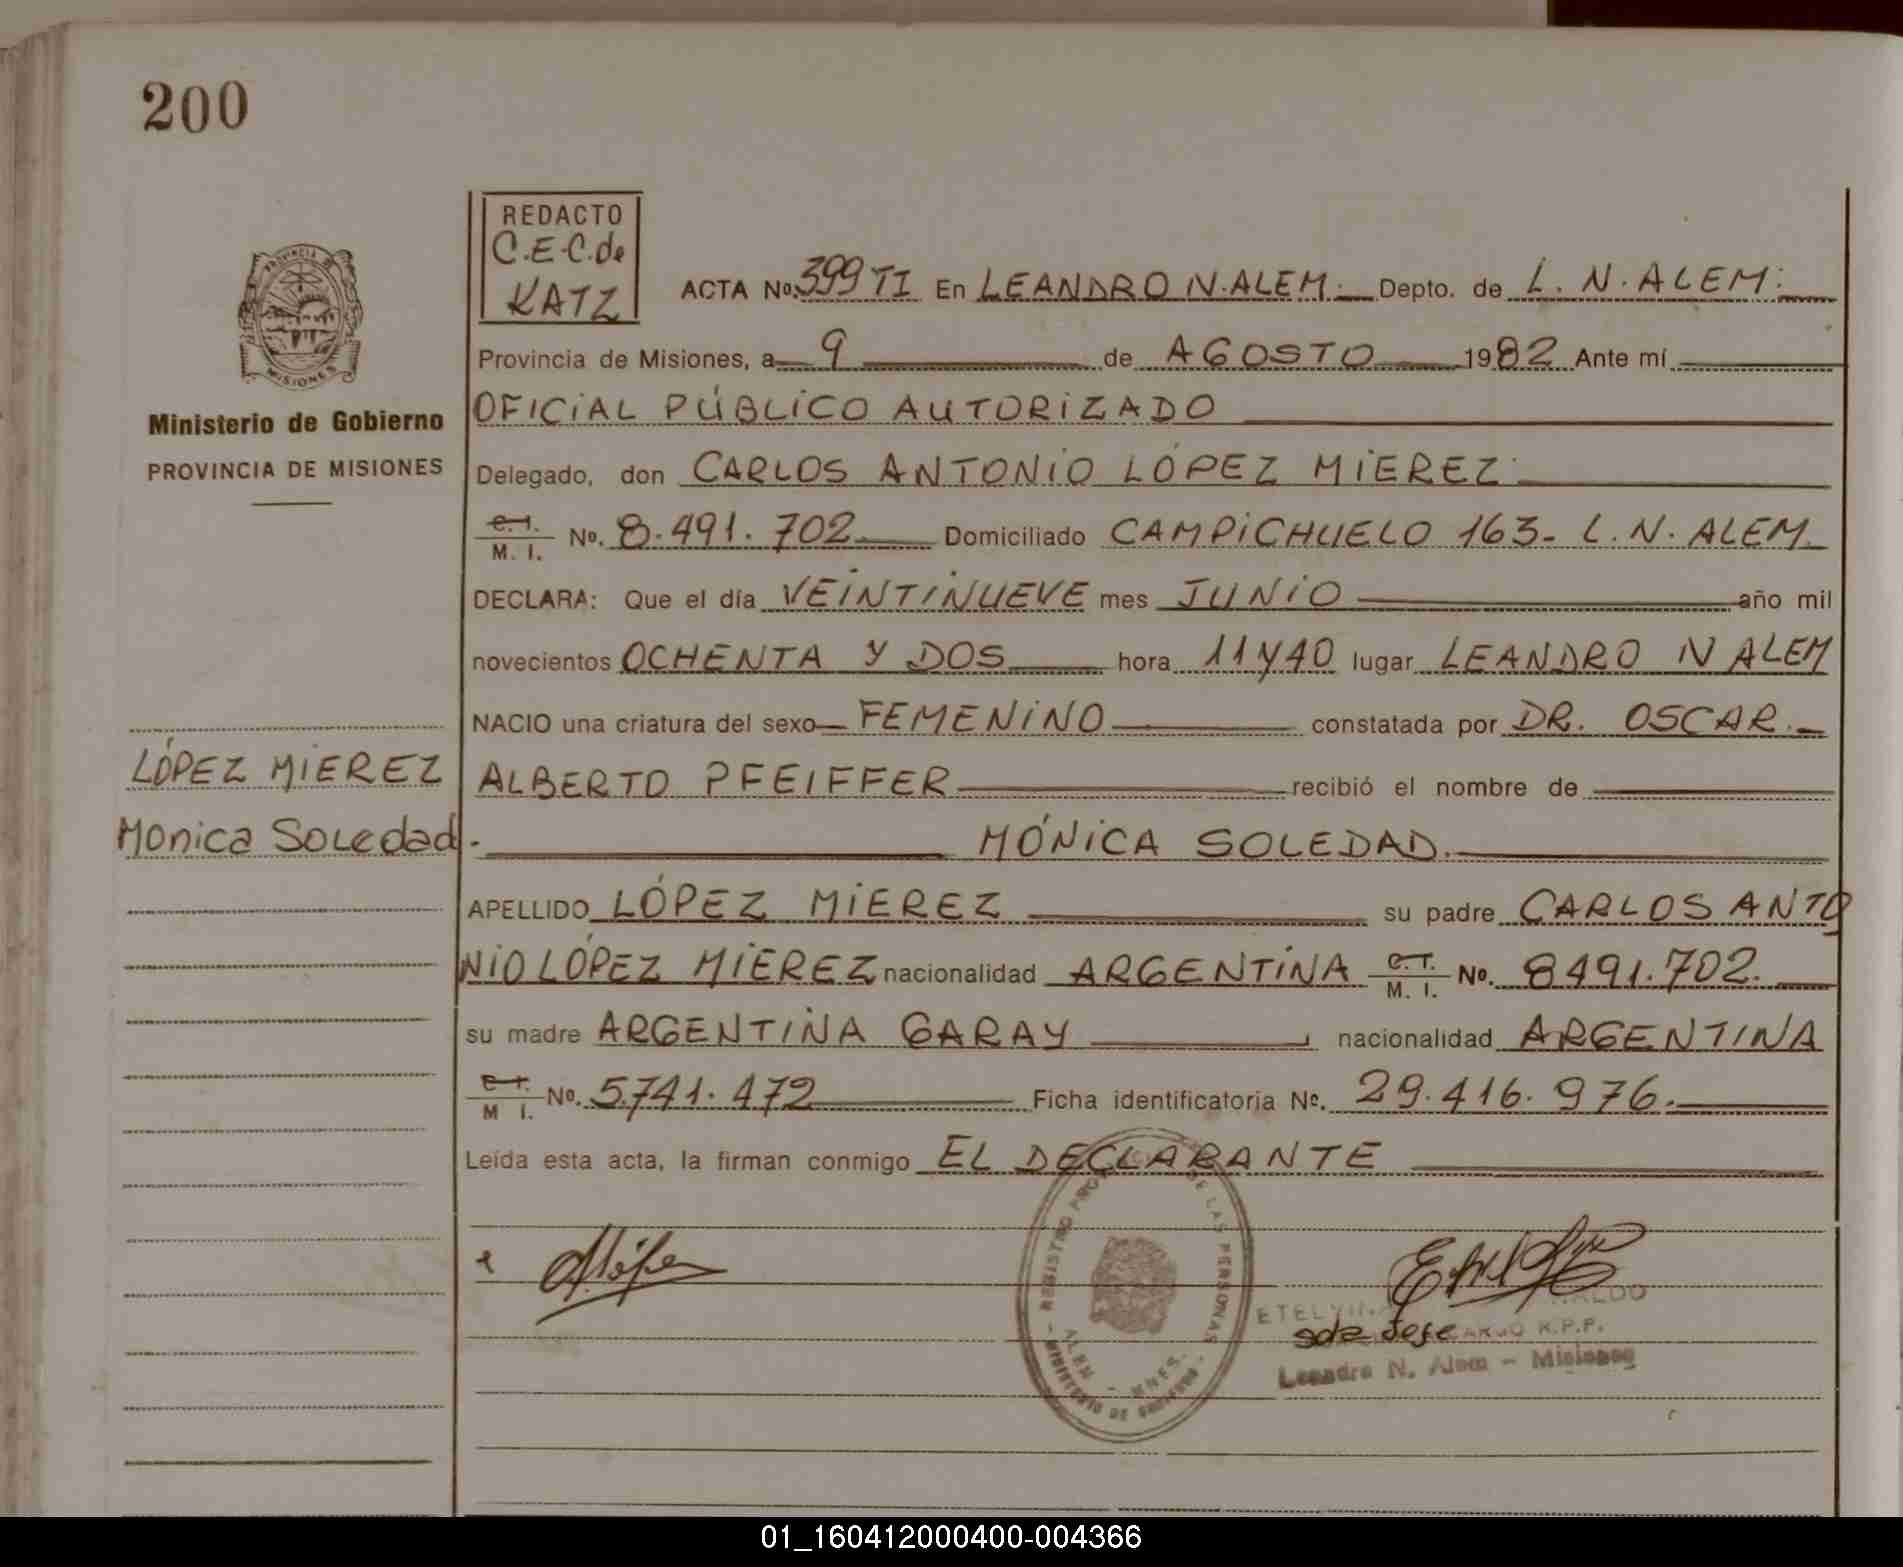 200
REDACTO
C.E.C. de
KATZ
ACTA No. 399 TI En LEANDRO N. ALEM. Depto. de L. N. ALEM:
Provincia de Misiones, a 9 de AGOSTO 1982 Ante mí
OFICIAL PÚBLICO AUTORIZADO
Delegado, don CARLOS ANTONIO LÓPEZ MIEREZ
C. I. M. I. No. 8.491.702 Domiciliado CAMPICHUELO 163- L.N. ALEM.
DECLARA: Que el día VEINTINUEVE mes JUNIO año mil
novecientos OCHENTA Y DOS hora 11 y 40 lugar LEANDRO N ALEM
NACIO una criatura del sexo FEMENINO constatada por DR. OSCAR.
ALBERTO PFEIFFER recibió el nombre de
MÓNICA SOLEDAD.
APELLIDO LÓPEZ MIEREZ su padre CARLOS ANTO
NIO LÓPEZ MIEREZ nacionalidad ARGENTINA C. I. M. I. No. 8491.702.
su madre ARGENTINA GARAY nacionalidad ARGENTINA
C. I. M I. No. 5.741.472 Ficha identificatoria No. 29.416.976.
Leída esta acta, la firman conmigo EL DECLARANTE
PROVINCIA DE
MISIONES
Ministerio de Gobierno
PROVINCIA DE MISIONES
LÓPEZ MIEREZ
Monica Soledad
REGISTRO DE LAS PERSONAS
ALEM - MNES.
MINISTERIO DE GOBIERNO
Jefe R.P.P.
Leandro N. Alem - Misiones
01_160412000400-004366